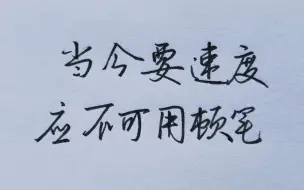 当今要速度
应不可用顿笔